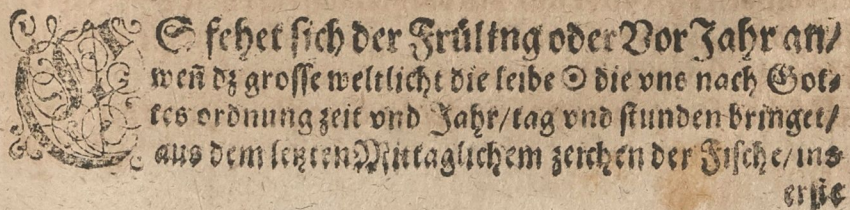 ES fehet sich der Früling oder Vor Jahr an/
weñ dz grosse weltlicht die leibe ☉ die vns nach Got⸗
tes ordnung zeit vnd Jahr/tag vnd stunden bringet/
aus dem letzten Mittaglichem zeichen der Fische/ins
erste